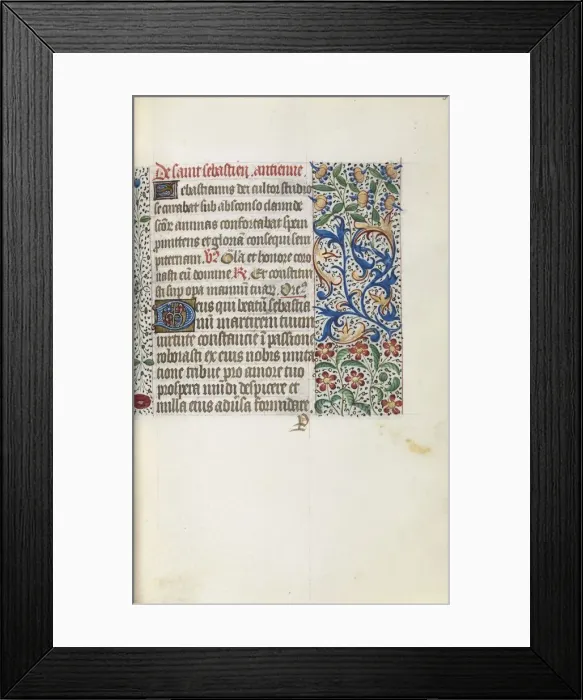 De saint sebastien. antienne.
Sebastianus dei cultor studio
se curabat sub absconso clamide
scōr animas confortabat spem
penitens et gloriā consequi sem
piternam. V̄. Glā et honore coro
nasti eū domine. R̄. Et constitui
sti sup opa manuū tuar. Oreˢ
Deus qui beatū sebastia
num martirem tuum
virtute constancie ī passione
roborasti ex eius nobis imita
cione tribue pro amore tuo
prospera mūdi despicere et
nulla eius adūsa formidare
P